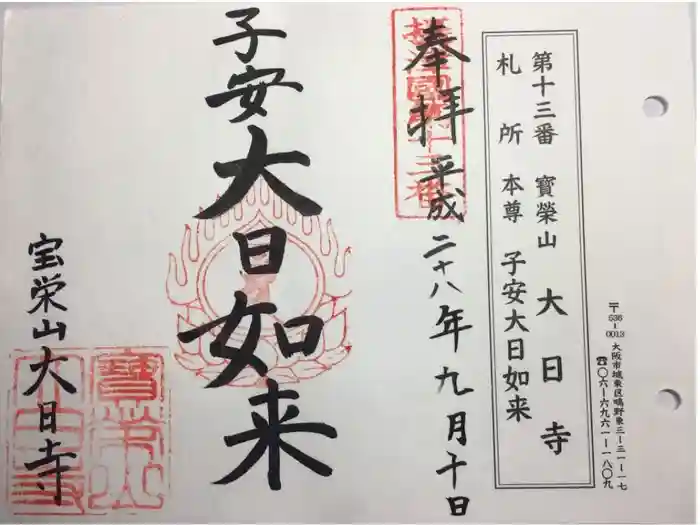 〒536-0013 大阪市城東区鴫野東三ー三一ー一七
☎〇六ー六九六一ー一八〇九
第十三番 寶榮山 大日寺
札所 本尊 子安大日如来
奉拝 平成二十八年九月十日
摂津國第十三番
子安大日如来
宝栄山大日寺
寶榮山
大日寺